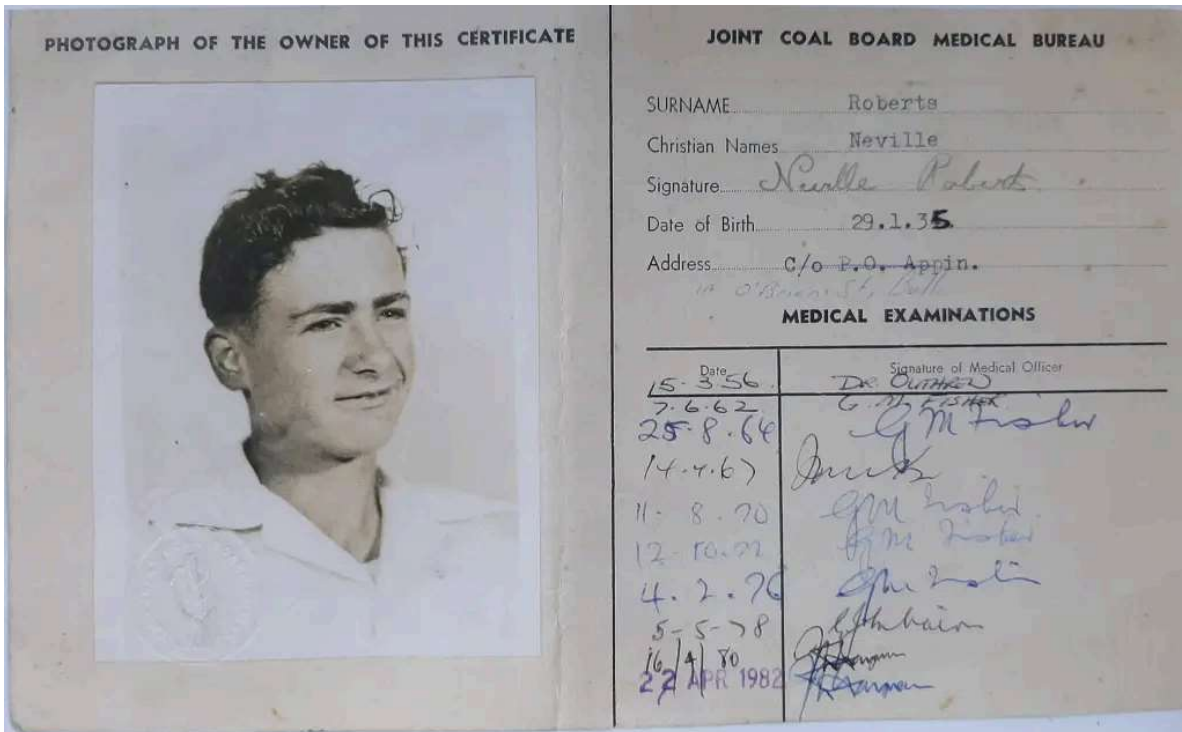 PHOTOGRAPH OF THE OWNER OF THIS CERTIFICATE
JOINT COAL BOARD MEDICAL BUREAU
SURNAME Roberts
Christian Names Neville
Signature Neville Roberts
Date of Birth 29.1.35
Address C/o P.O. Appin.
O'Brien St,
MEDICAL EXAMINATIONS
Date Signature of Medical Officer
15-3.56. DR. OUTHRED
7.6.62 G. M. FISHER
25.8.64 G M Fisher
14.4.67
11.8.70 G M Fisher
12-10.72 G M Fisher
4.2.76 G M Fisher
5-5-78
16/4/80
22 APR 1982